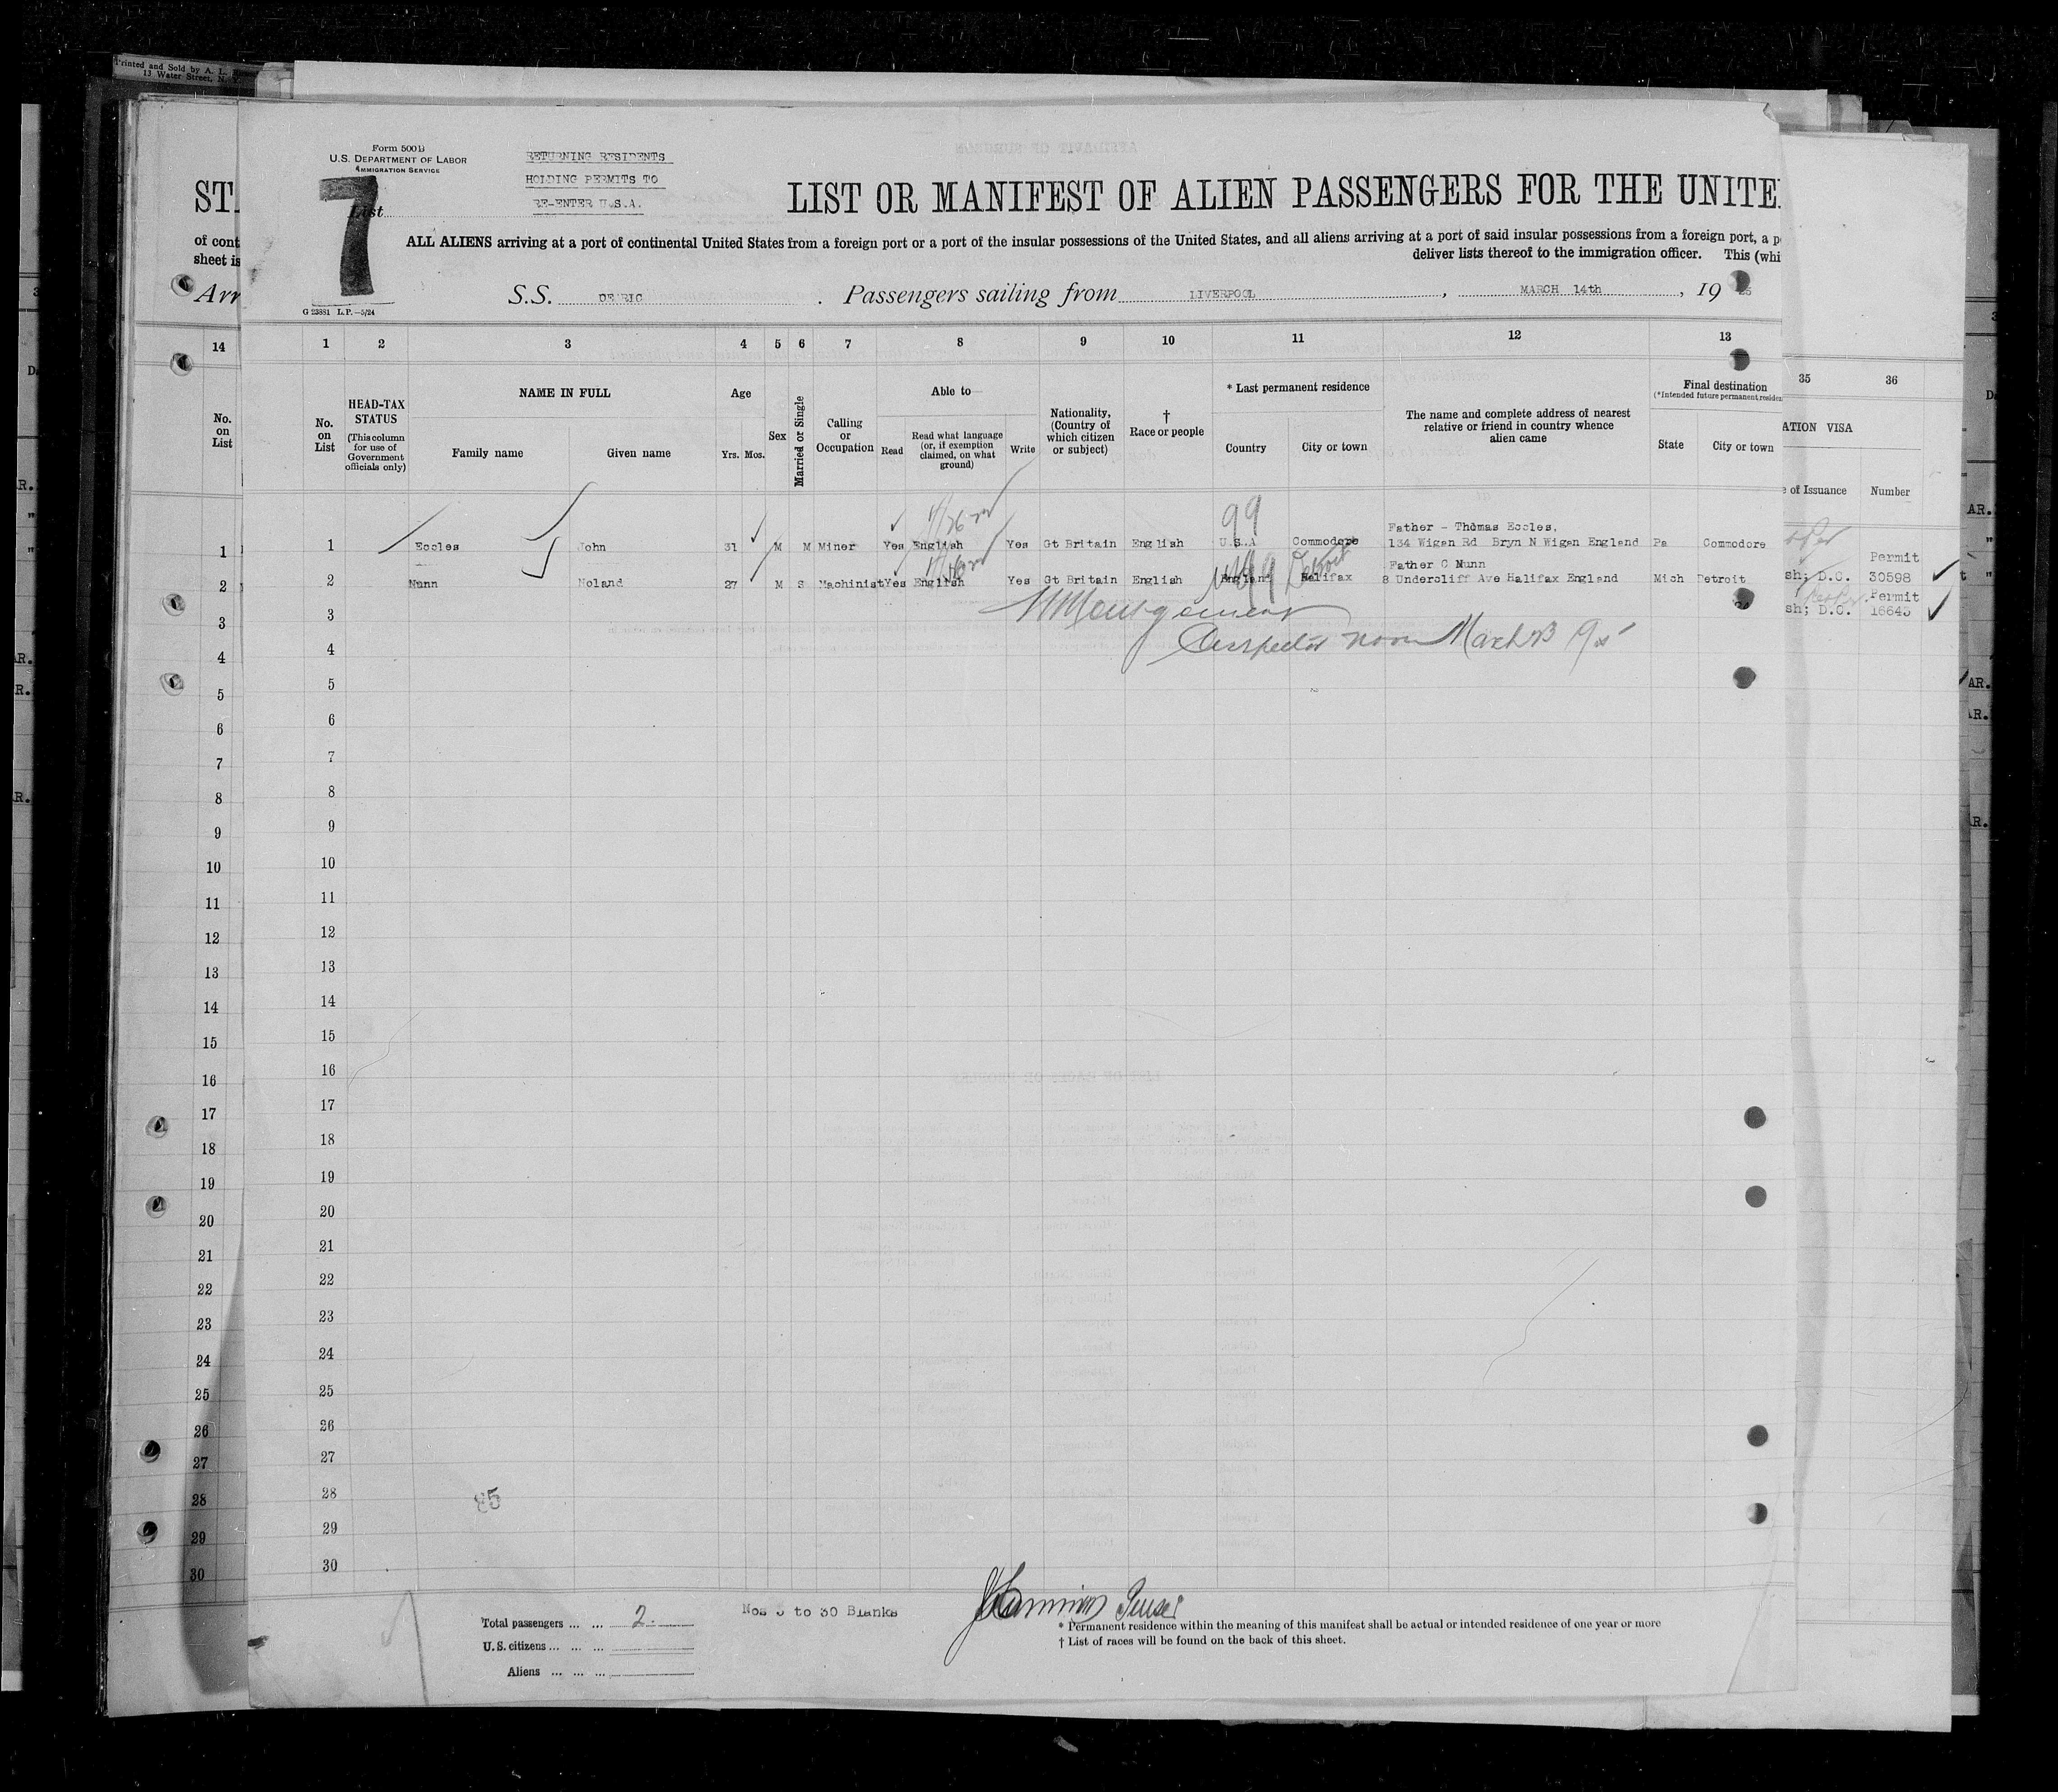 Printed and Sold by A. L.
13 Water Street, N. Y.
Form 500 B
U.S. DEPARTMENT OF LABOR
IMMIGRATION SERVICE
List
7
RETURNING RESIDENTS
HOLDING PERMITS TO
RE-ENTER U.S.A.
STA
LIST OR MANIFEST OF ALIEN PASSENGERS FOR THE UNITE
of cont
ALL ALIENS arriving at a port of continental United States from a foreign port or a port of the insular possessions of the United States, and all aliens arriving at a port of said insular possessions from a foreign port, a p
sheet is
deliver lists thereof to the immigration officer. This (whi
Arr
S.S. CEDRIC. Passengers sailing from LIVERPOOL, MARCH 14th, 19
G 23881 L.P.—5/24
14 1 2 3 4 5 6 7 8 9 10 11 12 13 35 36
No. on List
No. on List
HEAD-TAX STATUS
(This column for use of Government officials only)
NAME IN FULL
Family name Given name
Age
Yrs. Mos.
Sex
Married or Single
Calling or Occupation
Able to
Read
Read what language (or, if exemption claimed, on what ground)
Write
Nationality, (Country of which citizen or subject)
† Race or people
* Last permanent residence
Country City or town
The name and complete address of nearest relative or friend in country whence alien came
Final destination
(*Intended future permanent residen
State City or town
ATION VISA
e of Issuance Number
99
Father - Thomas Eccles,
1 Eccles John 31 M M Miner Yes English Yes Gt Britain English U.S.A Commodore 134 Wigan Rd Bryn N Wigan England Pa Commodore
Detroit
Father C Nunn
2 Nunn Noland 27 M S Machinist Yes English Yes Gt Britain English England Halifax 8 Undercliff Ave Halifax England Mich Detroit
Permit
sh; D.C. 30598
Permit
sh; D.C. 16643
3
4
5
6
7
8
9
10
11
12
13
14
15
16
17
18
19
20
21
22
23
24
25
26
27
28
29
30
85
Total passengers ... ... 2.
Nos 3 to 30 Blanks
U.S. citizens ... ... ...
Aliens ... ... ...
* Permanent residence within the meaning of this manifest shall be actual or intended residence of one year or more
† List of races will be found on the back of this sheet.